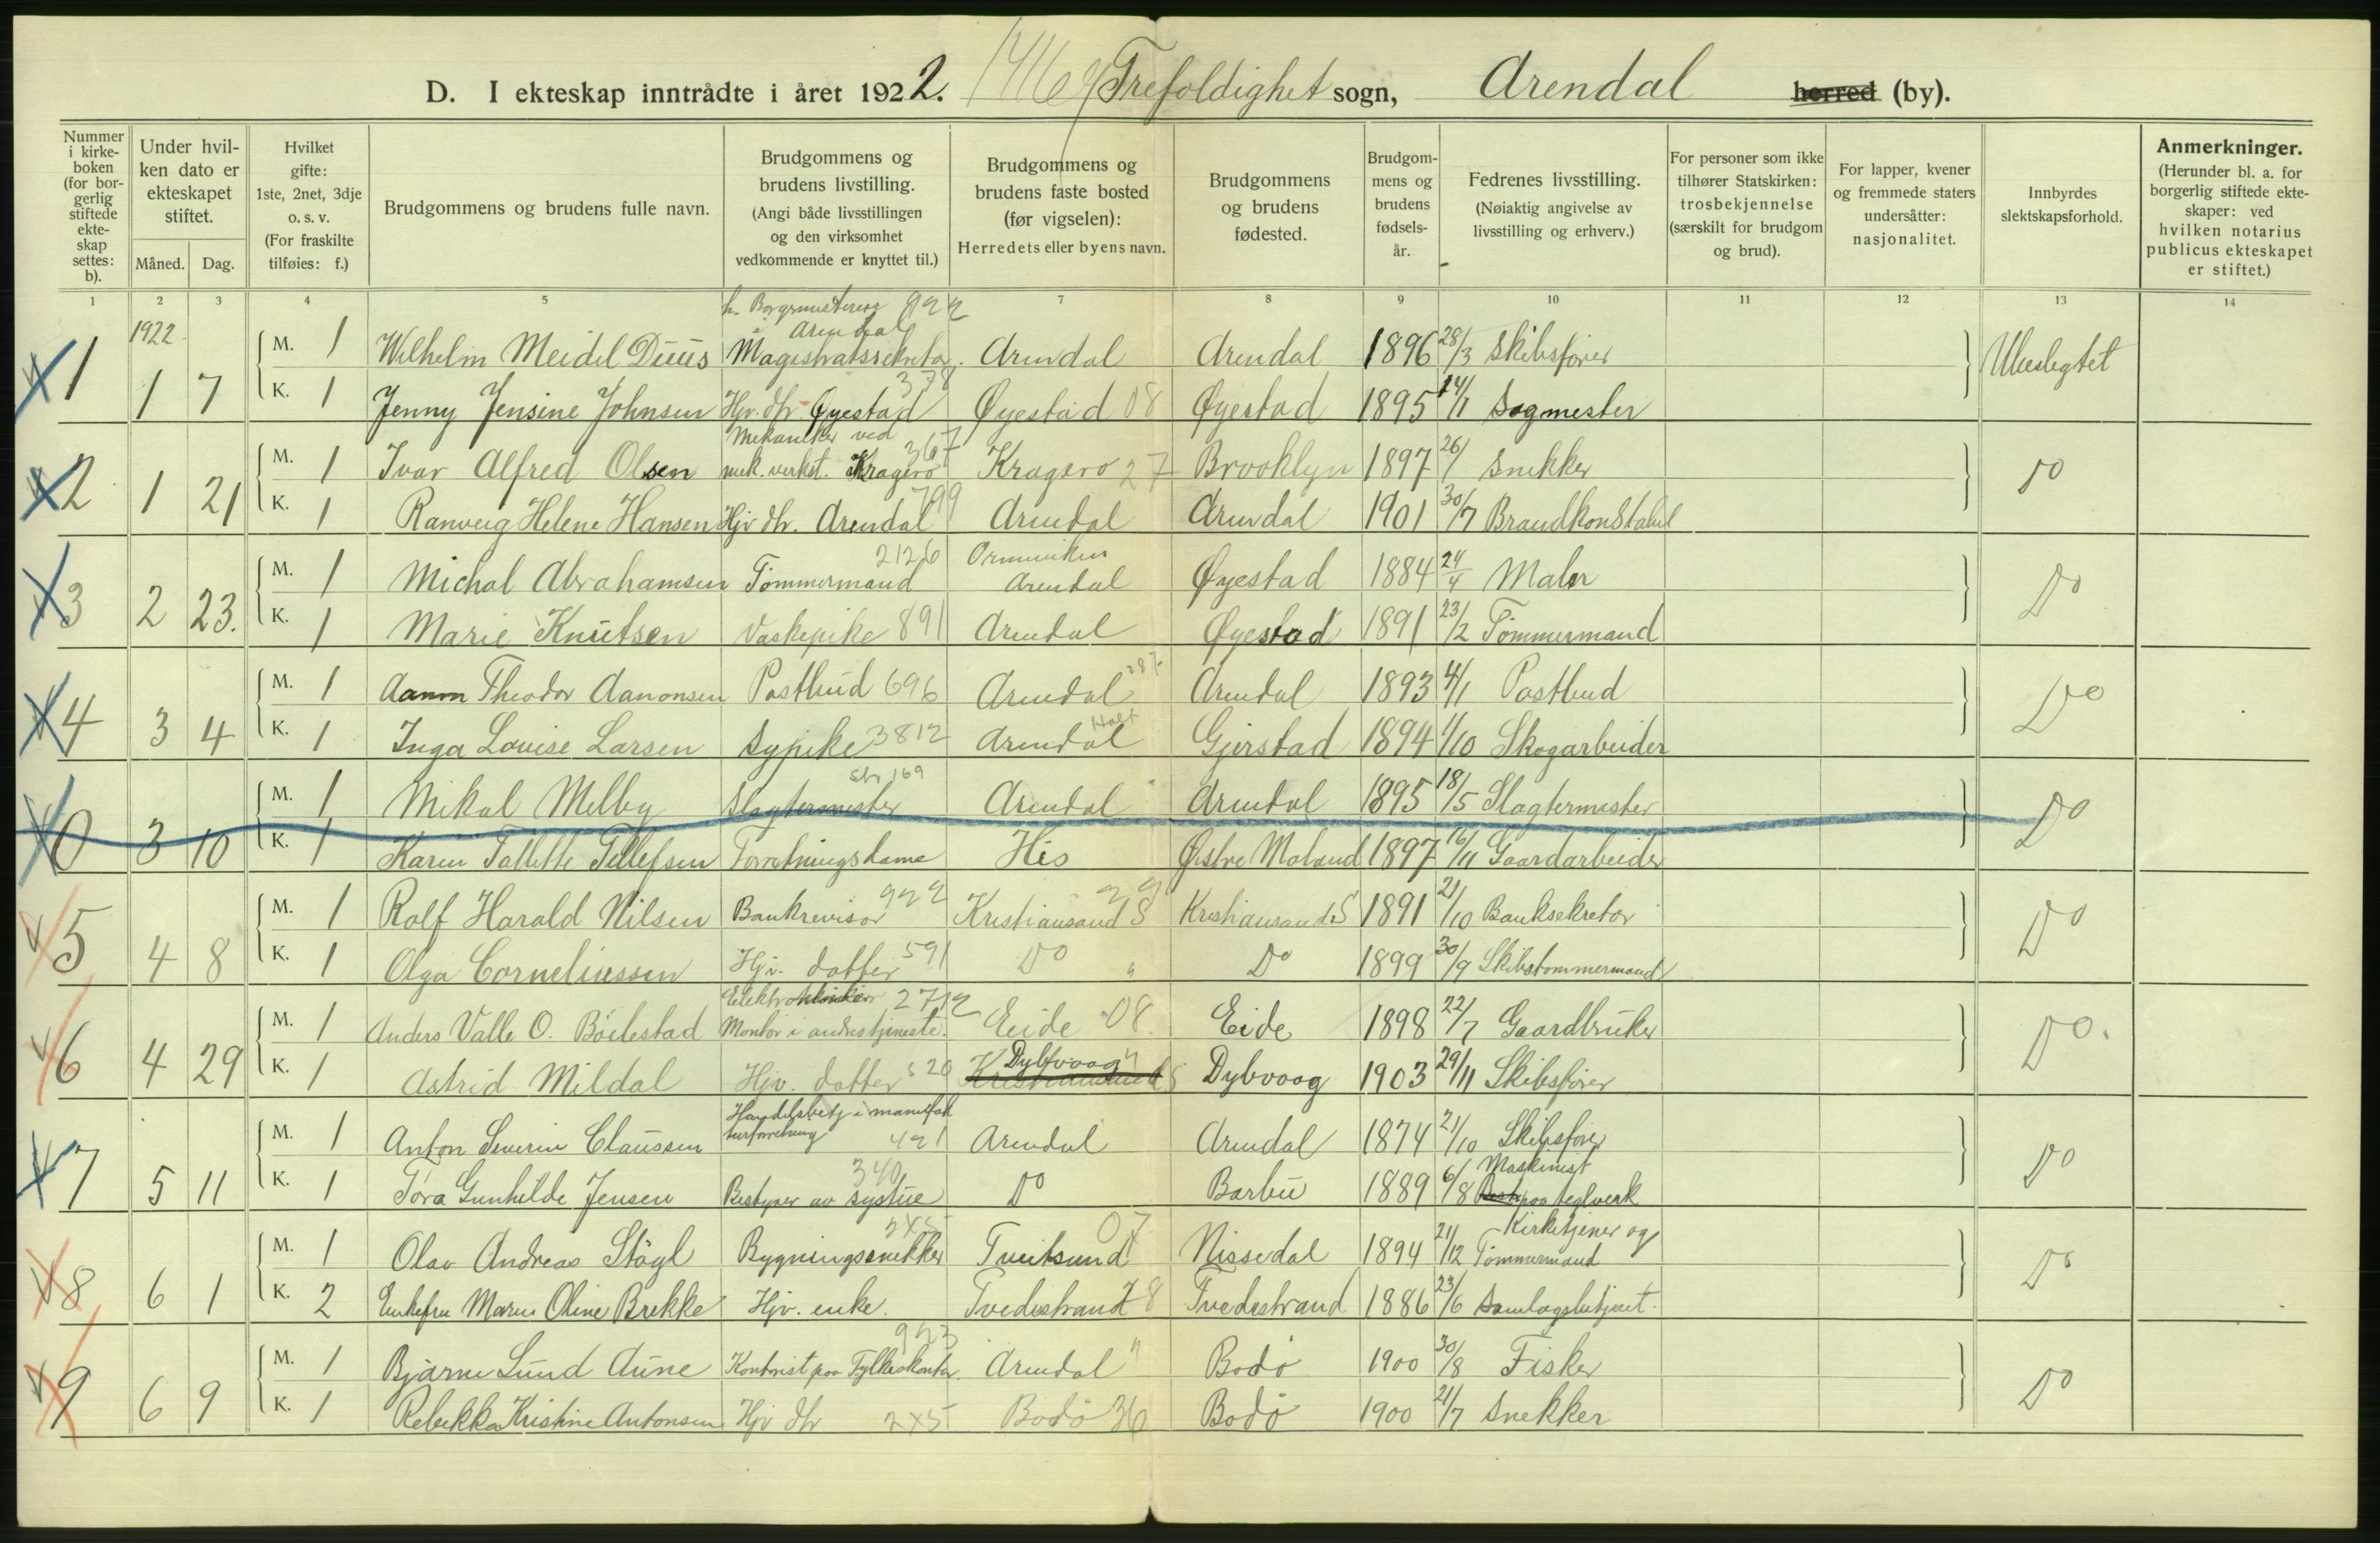 D. I ekteskap inntrådte i året 1922. Trefoldighet sogn, Arendal herred (by).
Nummer i kirkeboken (for borgerlig stiftede ekteskap settes: b).
Under hvilken dato er ekteskapet stiftet.
Måned. Dag.
Hvilket gifte: 1ste, 2net, 3dje o. s. v. (For fraskilte tilføies: f.)
Brudgommens og brudens fulle navn.
Brudgommens og brudens livstilling. (Angi både livsstillingen og den virksomhet vedkommende er knyttet til.)
Brudgommens og brudens faste bosted (før vigselen): Herredets eller byens navn.
Brudgommens og brudens fødested.
Brudgommens og brudens fødselsår.
Fedrenes livsstilling. (Nøiaktig angivelse av livsstilling og erhverv.)
For personer som ikke tilhører Statskirken: trosbekjennelse (særskilt for brudgom og brud).
For lapper, kvener og fremmede staters undersåtter: nasjonalitet.
Innbyrdes slektskapsforhold.
Anmerkninger. (Herunder bl. a. for borgerlig stiftede ekteskaper: ved hvilken notarius publicus ekteskapet er stiftet.)
1 2 3 4 5 7 8 9 10 11 12 13 14
1922.
h. Borgermesteren 922
i Arendal
1 1 7 M. 1 Wilhelm Meidel Duus Magistratssekretær. Arendal Arendal 1896 28/3 Skibsfører Ubeslegtet
K. 1 Jenny Jensine Johnsen Hjv. dtr. Øyestad 378 Øyestad 08 Øyestad 1895 14/1 Sagmester
Mekaniker ved 367
2 1 21 M. 1 Ivar Alfred Olsen mek. verkst. Kragerø Kragerø 27 Brooklyn 1897 26/ Snekker Do
K. 1 Ranveig Helene Hansen Hjv dtr. Arendal 799 Arendal Arendal 1901 30/7 Brandkonstabel
3 2 23. M. 1 Michal Abrahamsen Tömmermand 2126 Arendal Øyestad 1884 24/4 Maler Do
K. 1 Marie Knutsen Vaskepike 891 Arendal Øyestad 1891 23/2 Tömmermand
4 3 4 M. 1 Aanon Theodor Aanonsen Postbud 696 Arendal Arendal 1893 4/1 Postbud Do
Holt
K. 1 Inga Lovise Larsen Sypike 3812 Arendal Gjerstad 1894 1/10 Skogarbeider
str 169
0 3 10 M. 1 Mikal Melby Slagtermester Arendal Arendal 1895 18/5 Slagtermester Do
K. 1 Karen Tallette Tellefsen Forretningsdame His Østre Moland 1897 16/11 Gaardarbeider
5 4 8 M. 1 Rolf Harald Nilsen Bankrevisor 922 Kristiansand S 29 Kristiansand S 1891 21/10 Banksekretær Do
K. 1 Olga Corneliussen Hjv. datter 591 Do " Do 1899 30/9 Skibstømmermand
2712
6 4 29 M. 1 Anders Valle O. Böilestad Montör i andres tjeneste. Eide 08 Eide 1898 22/7 Gaardbruker Do.
K. 1 Astrid Mildal Hjv. datter 520 Dybvaag " Dybvaag 1903 29/11 Skibsfører
Handelsbetj. i manufak
7 5 11 M. 1 Anton Severin Claussen turforretning 421 Arendal Arendal 1874 21/10 Skibsfører Do
340 Maskinist
K. 1 Tora Gunhilde Jensen Bestyrer av systue Do Barbu 1889 6/8 paa teglverk
2x5 07 Kirketjener og
8 6 1 M. 1 Olav Andreas Stögl Bygningssnekker Tveitsund Nissedal 1894 21/12 Tömmermand Do
K. 2 Enkefru Maren Oline Brekke Hjv. enke. Tvedestrand 8 Tvedestrand 1886 23/6 Samlagsbetjent.
923
9 6 9 M. 1 Bjarne Lund Aune Kontorist paa Fylkeskontor. Arendal " Bodö 1900 30/8 Fisker Do
K. 1 Rebekka Kristine Antonsen Hjv dtr 2x5 Bodö 36 Bodö 1900 21/7 Snekker